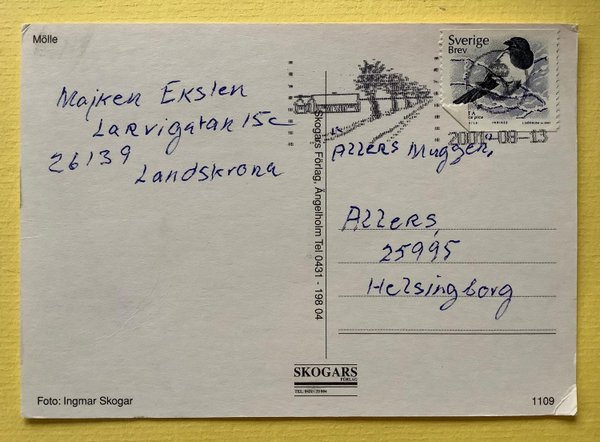 Mölle
Majken Eksten
Larvigatan 15c
26139
Landskrona
Skogars Förlag, Ängelholm Tel 0431 - 198 04
Sverige
Brev
2001-08-13
Allers Muggen,
Allers,
25995
Helsingborg
SKOGARS
FÖRLAG
Foto: Ingmar Skogar
1109